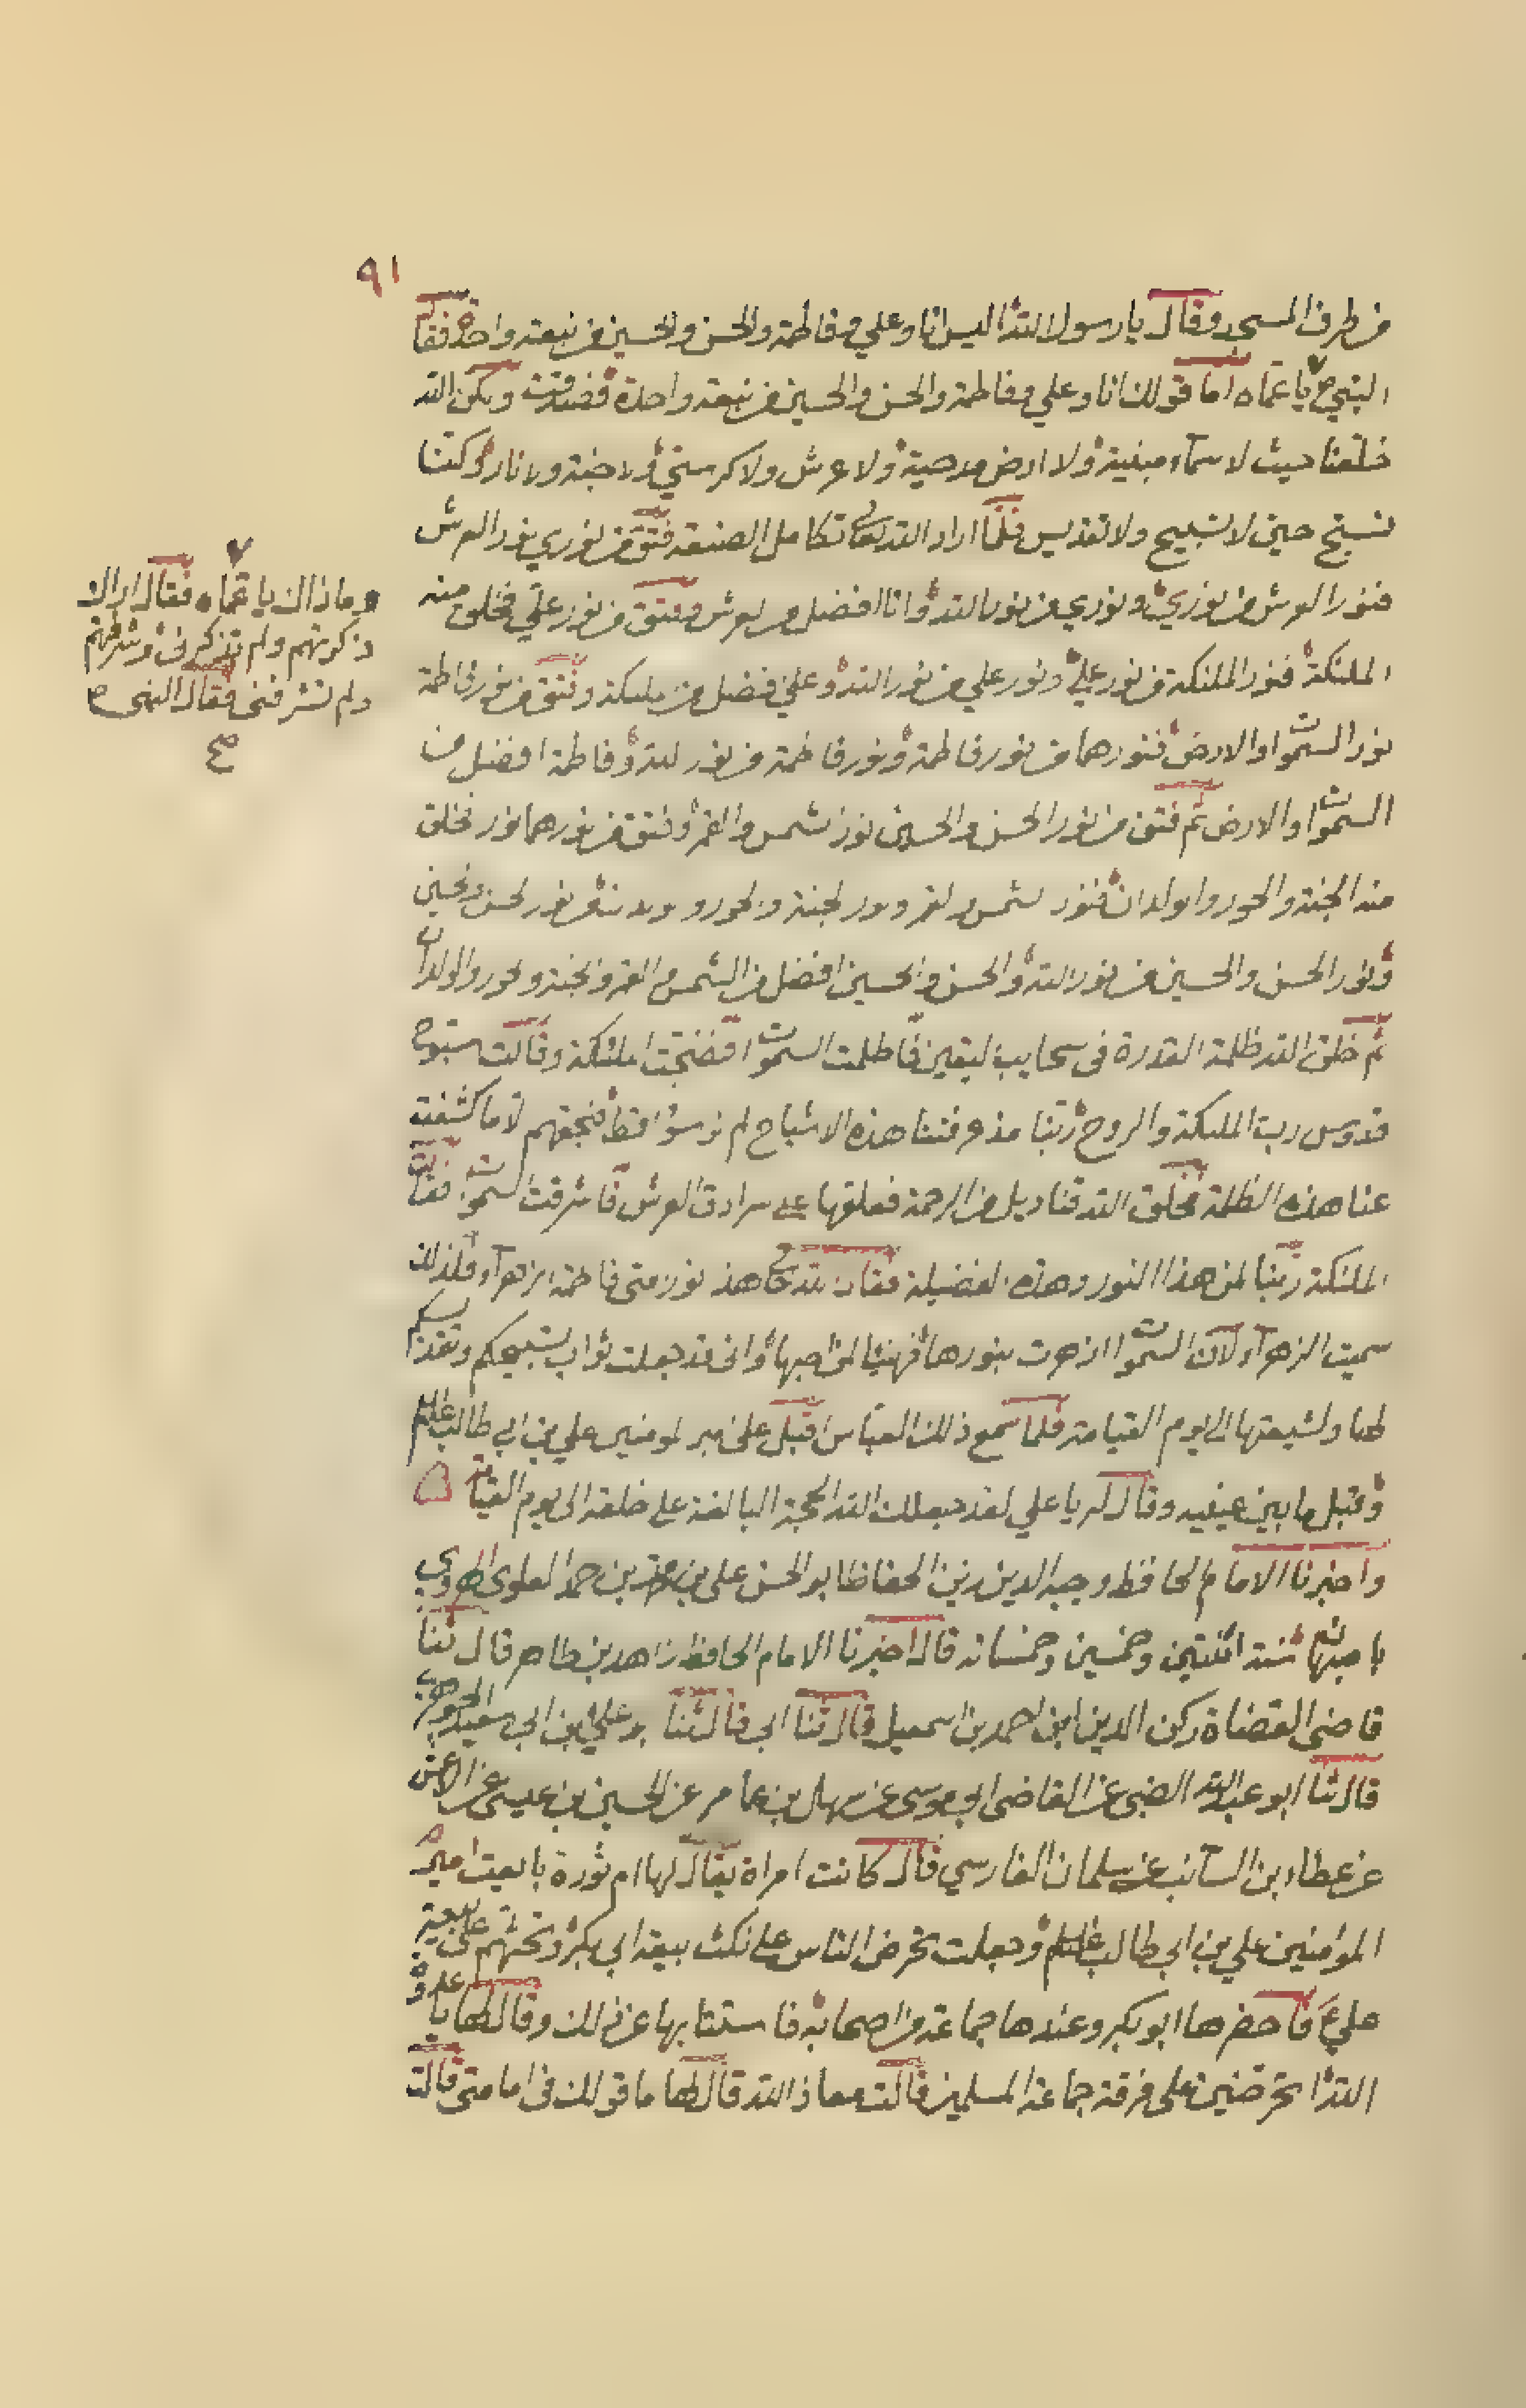 ٩١
من طرف المسجد وقال يا رسول الله اليس انا وعلي وفاطمة والحسن والحسين من نبعة واحدة فقال
النبي ص يا عماه اما قولك انا وعلي وفاطمة والحسن والحسين من نبعة واحدة فصدقت ولكن الله
خلقنا حيث لا سماء مبنية ولا ارض مدحية ولا عرش ولا كرسي ولا جنة ولا نار وكنا
نسبح حين لا تسبيح ولا تقديس فلما اراد الله تعالى تكامل الصنعة فتق من نوري نور العرش
فنور العرش من نوري ونوري من نور الله وانا افضل من العرش وفتق من نور علي فخلق منه
الملئكة فنور الملئكة من نور علي ونور علي من نور الله وعلي افضل من الملئكة وفتق من نور فاطمة
نور السموات والارض فنورهما من نور فاطمة ونور فاطمة من نور الله وفاطمة افضل من
السموات والارض ثم فتق من نور الحسن والحسين نور الشمس والقمر وفتق من نورهما نور فخلق
منه الجنة والحور والولدان فنور الشمس والقمر ونور الجنة والحور والولدان من نور الحسن والحسين
ونور الحسن والحسين من نور الله والحسن والحسين افضل من الشمس والقمر والجنة والحور والولدان
ثم خلق الله ظلمة القدرة في سحايب اليقين فاظلمت السموات فضجت الملئكة وقالت سبوح
قدوس رب الملئكة والروح ربنا مذ عرفتنا هذه الاشباح لم نر سوءا قط فبحقهم الا ما كشفت
عنا هذه الظلمة فخلق الله قناديل من الرحمة فعلقها على سرادق العرش فاشرقت السموات فقالت
الملئكة ربنا لمن هذا النور وهذه الفضيلة فقال الله تعالى هذا نور امتي فاطمة الزهراء فلذلك
سميت الزهراء لان السموات ازهرت بنورها فهنيئا لمن احبها واني قد جعلت ثواب تسبيحكم وتقديسكم
لها ولشيعتها الى يوم القيامة فلما سمع ذلك العباس اقبل على امير المومنين علي بن ابي طالب عليه السلم
وقبل ما بين عينيه وقال له يا علي لقد جعلك الله الحجة البالغة على خلقه الى يوم القيامة
واخبرنا الامام الحافظ وجيه الدين زين الحفاظ ابو الحسن علي بن محمد بن حمد العلوي الهروي
باصبهان سنة اثنتين وخمسين وخمسماية قال اخبرنا الامام الحافظ زاهد بن طاهر قال ثنا
قاضي القضاة ركن الدين ابن احمد بن اسمعيل قال ثنا ابي قال ثنا ابو علي بن ابي سعيد الجوهري
قال ثنا ابو عبد الله الضبي عن القاضي ابي موسى عن سهل بن عامر عن الحسين بن عيسى عن الاعمش
عن عطاء بن السائب عن سلمان الفارسي قال كانت امراة يقال لها ام ثورة بايعت امير
المؤمنين علي بن ابي طالب عليه السلم وجعلت تحرض الناس على نكث بيعة ابي بكر وتحثهم على بيعة
علي ع فاحضرها ابو بكر وعندها جماعة من اصحابه فاستتابها عن ذلك وقال لها يا عدوة
الله اتحرضين على فرقة جماعة المسلمين قالت معاذ الله قال لها ما قولك في امامتي قالت
وما ذاك يا عماه فقال اراك
ذكرتهم ولم تذكرني وشرفتهم
ولم تشرفني فقال النبي ص
صح